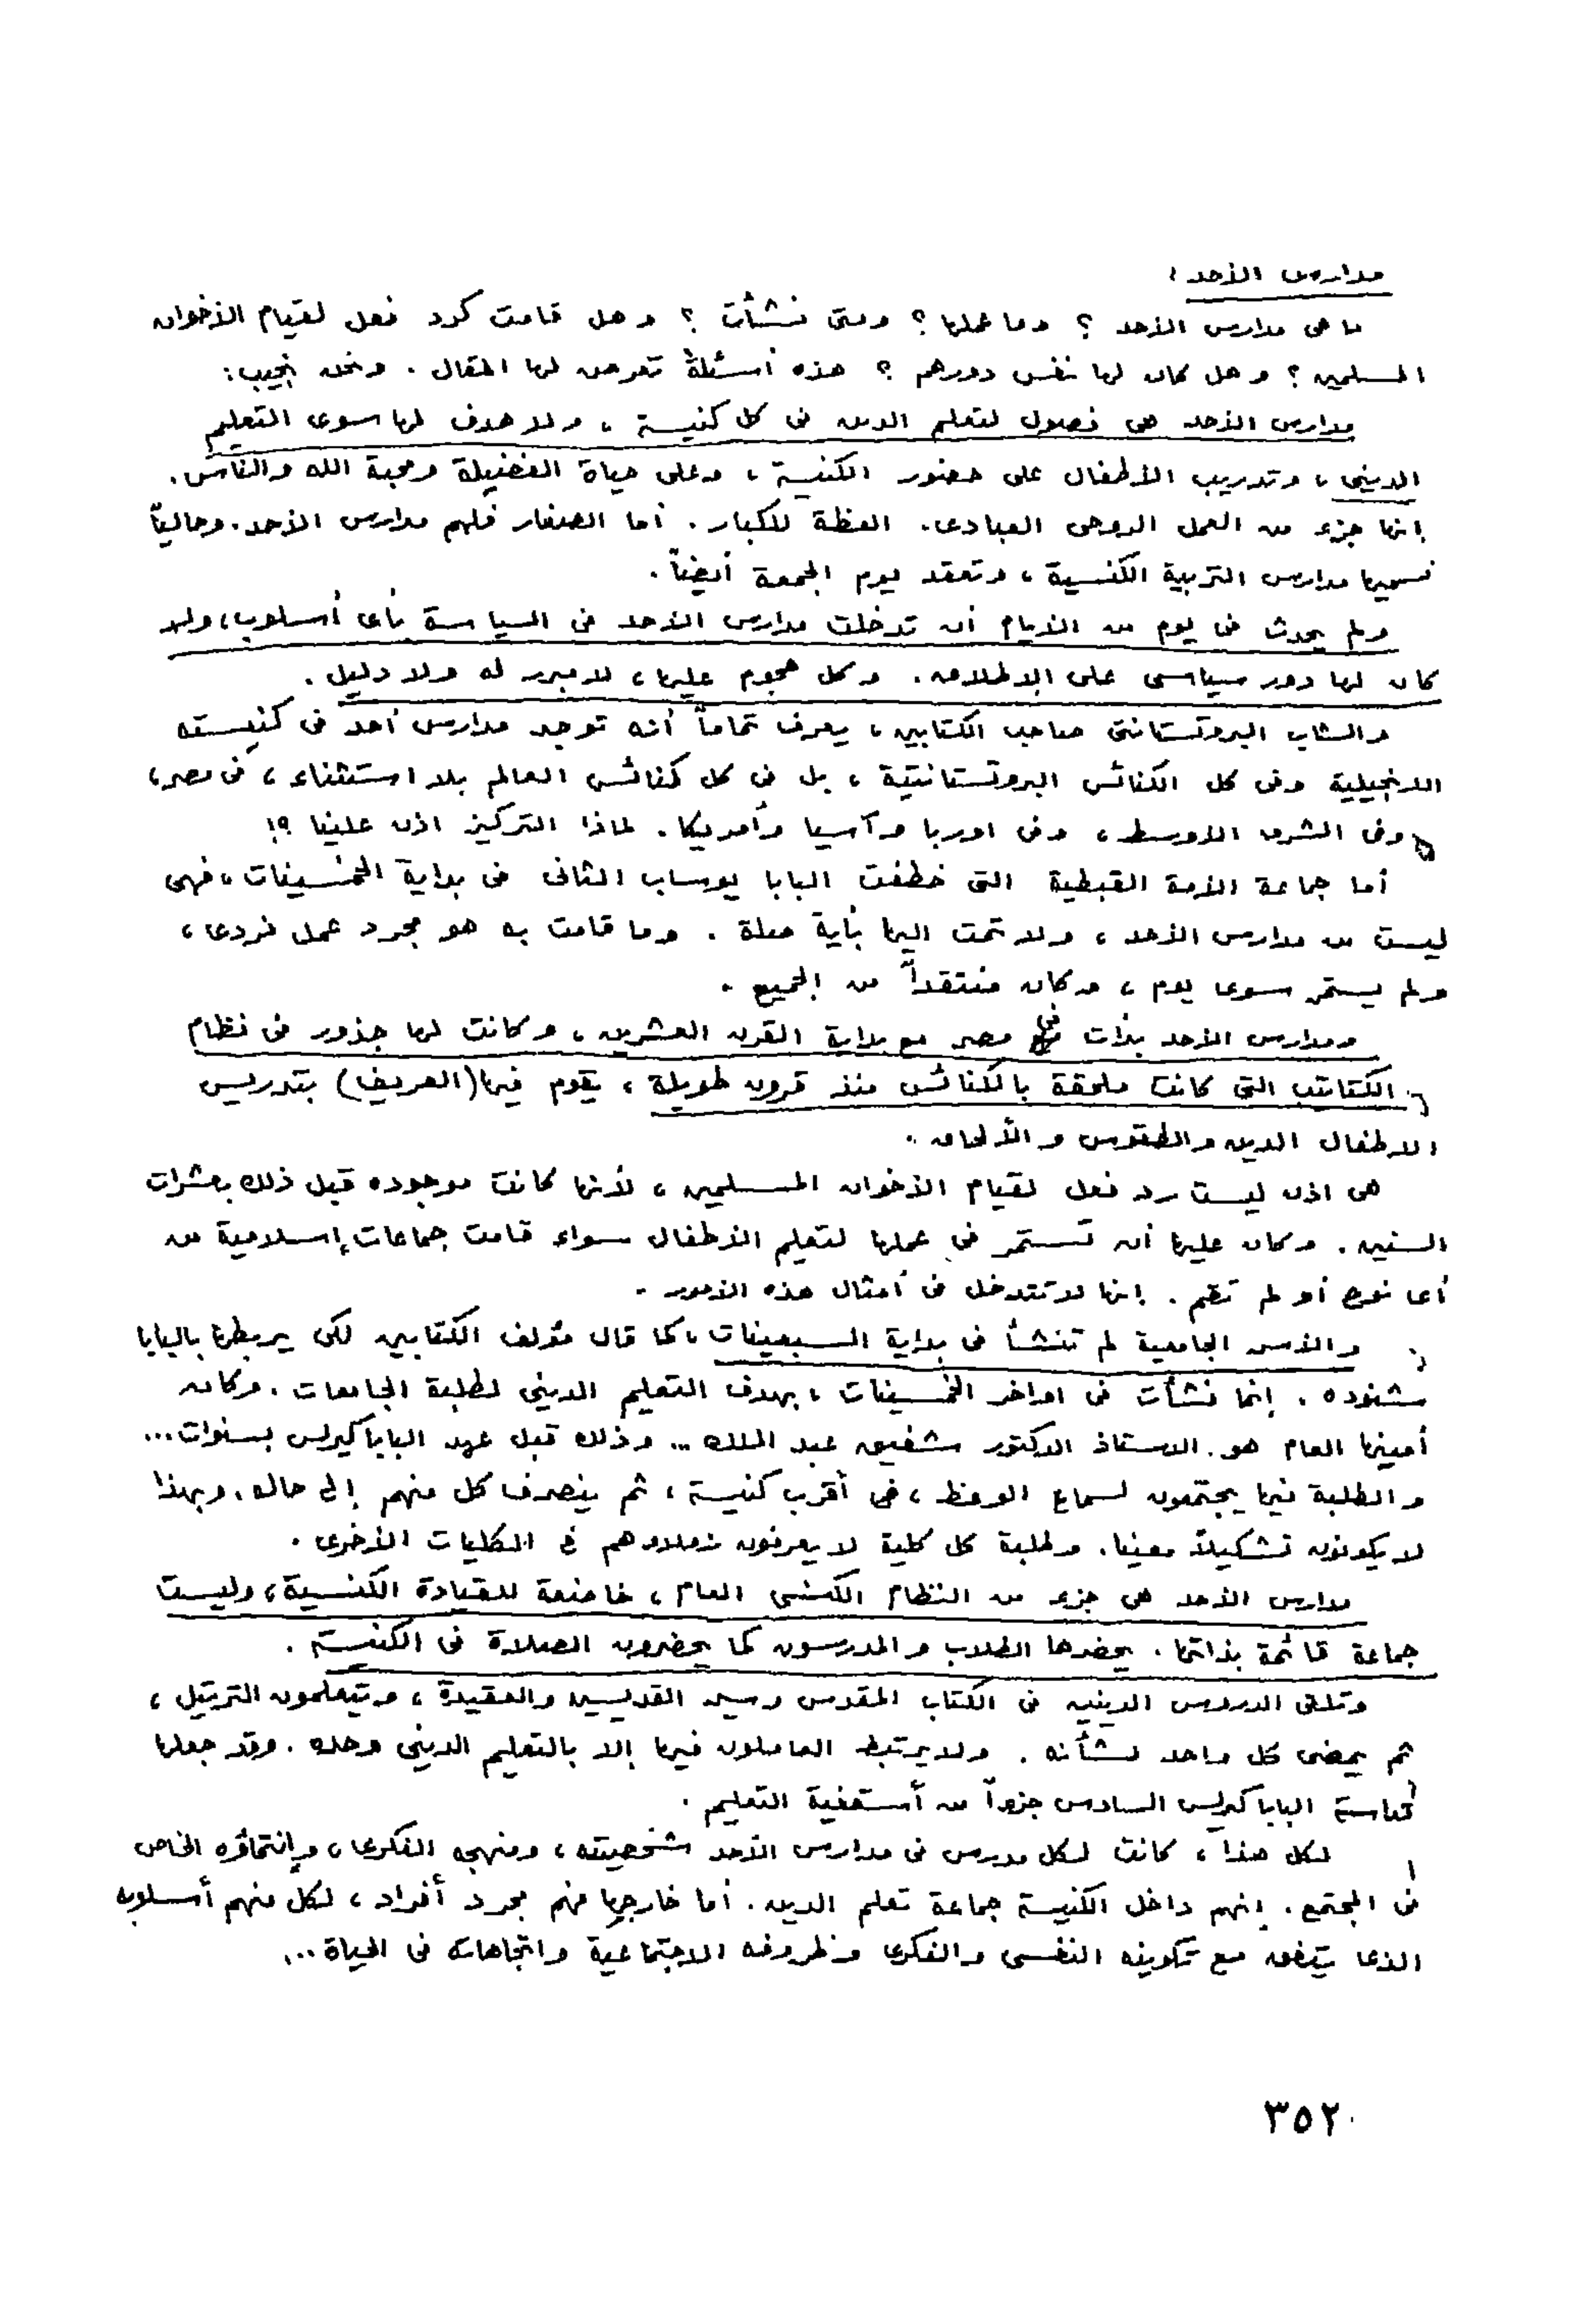 مدارس الأحد :
ما هى مدارس الأحد ؟ وما عملها ؟ ومتى نشأت ؟ وهل قامت كرد فعل لقيام الأخوان
المسلمين ؟ وهل كان لها نفس دورهم ؟ هذه أسئلة تعرض لها المقال . ونحن نجيب :
مدارس الأحد هى فصول لتعليم الدين فى كل كنيسة ، ولا هدف لها سوى التعليم
الدينى ، وتدريب الأطفال على حضور الكنيسة ، وعلى حياة الفضيلة ومحبة الله والناس .
إنها جزء من العمل الروحى العبادى . العظة للكبار . أما الصغار فلهم مدارس الأحد . وحالياً
نسميها مدارس التربية الكنسية ، وتعقد يوم الجمعة أيضاً .
ولم يحدث فى يوم من الأيام أن تدخلت مدارس الأحد فى السياسة بأى أسلوب ، ولا
كان لها دور سياسى على الإطلاق . وكل هجوم عليها ، لا مبرر له ولا دليل .
والشاب البروتستانتى صاحب الكتابين ، يعرف تماماً أنه توجد مدارس أحد فى كنيسته
الانجيلية وفى كل الكنائس البروتستانتية ، بل فى كل كنائس العالم بلا استثناء ، فى مصر ،
وفى الشرق الأوسط ، وفى اوربا وآسيا وأمريكا . لماذا التركيز اذن علينا ؟!
أما جماعة الأمة القبطية التى خطفت البابا يوساب الثانى فى بداية الخمسينات ، فهى
ليست من مدارس الأحد ، ولا تمت اليها بأية صلة . وما قامت به هو مجرد عمل فردى ،
ولم يستمر سوى يوم ، وكان منتقداً من الجميع .
ومدارس الأحد بدأت فى مصر مع بداية القرن العشرين ، وكانت لها جذور فى نظام
الكتاتيب التى كانت ملحقة بالكنائس منذ قرون طويلة ، يقوم فيها (العريف) بتدريس
الاطفال الدين والطقوس والألحان .
هى اذن ليست رد فعل لقيام الأخوان المسلمين ، لأنها كانت موجوده قبل ذلك بعشرات
السنين . وكان عليها أن تستمر فى عملها لتعليم الأطفال سواء قامت جماعات إسلامية من
أى نوع أو لم تقم . إنها لا تتدخل فى أمثال هذه الأمور .
والأسر الجامعية لم تنشأ فى بداية السبعينات ، كما قال مؤلف الكتابين لكى يربطها بالبابا
شنوده . إنما نشأت فى اواخر الخمسينات ، بهدف التعليم الدينى لطلبة الجامعات . وكان
أمينها العام هو الاستاذ الدكتور شفيق عبد الملك .. وذلك قبل عهد البابا كيرلس بسنوات ...
والطلبة فيها يجتمعون لسماع الوعظ ، فى أقرب كنيسة ، ثم ينصرف كل منهم إلى حاله . وبهذا
لا يكونون تشكيلاً معينا . وطلبة كل كلية لا يعرفون زملاءهم فى الكليات الأخرى .
مدارس الأحد هى جزء من النظام الكنسى العام ، خاضعة للقيادة الكنسية ، وليست
جماعة قائمة بذاتها . يحضرها الطلاب والمدرسون كما يحضرون الصلاة فى الكنيسة .
وتلقى الدروس الدينيه فى الكتاب المقدس وسير القديسين والعقيدة ، ويتعلمون الترتيل ،
ثم يمضى كل واحد لشأنه . ولا يرتبط العاملون فيها إلا بالتعليم الدينى وحده . وقد جعلها
قداسة البابا كيرلس السادس جزءاً من أسقفية التعليم .
لكل هذا ، كانت لكل مدرس فى مدارس الأحد شخصيته ، ومنهجه الفكرى ، وإنتماؤه الخاص
فى المجتمع . إنهم داخل الكنيسة جماعة تعلم الدين . أما خارجها فهم مجرد أفراد ، لكل منهم أسلوبه
الذى يتفق مع تكوينه النفسى والفكرى وظروفه الاجتماعية واتجاهاته فى الحياة ...
٣٥٢